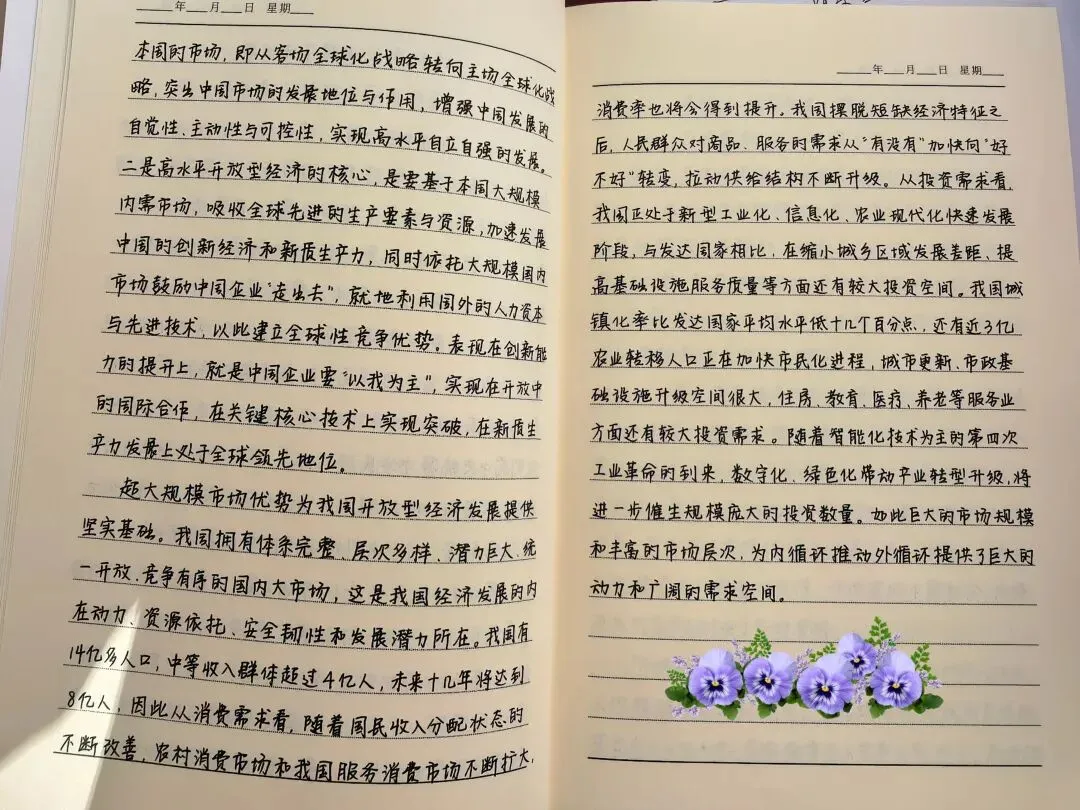 ____年___月___日 星期___
本国的市场，即从客场全球化战略转向主场全球化战
略，突出中国市场的发展地位与作用，增强中国发展的
自觉性、主动性与可控性，实现高水平自立自强的发展。
二是高水平开放型经济的核心，是要基于本国大规模
内需市场，吸收全球先进的生产要素与资源，加速发展
中国的创新经济和新质生产力，同时依托大规模国内
市场鼓励中国企业“走出去”，就地利用国外的人力资本
与先进技术，以此建立全球性竞争优势。表现在创新能
力的提升上，就是中国企业要“以我为主”，实现在开放中
的国际合作，在关键核心技术上实现突破，在新质生
产力发展上处于全球领先地位。
超大规模市场优势为我国开放型经济发展提供
坚实基础。我国拥有体系完整、层次多样、潜力巨大、统
一开放、竞争有序的国内大市场，这是我国经济发展的内
在动力、资源依托、安全韧性和发展潜力所在。我国有
14亿多人口，中等收入群体超过4亿人，未来十几年将达到
8亿人，因此从消费需求看，随着国民收入分配状态的
不断改善，农村消费市场和我国服务消费市场不断扩大，
____年___月___日 星期___
消费率也将会得到提升。我国摆脱短缺经济特征之
后，人民群众对商品、服务的需求从“有没有”加快向“好
不好”转变，拉动供给结构不断升级。从投资需求看，
我国正处于新型工业化、信息化、农业现代化快速发展
阶段，与发达国家相比，在缩小城乡区域发展差距、提
高基础设施服务质量等方面还有较大投资空间。我国城
镇化率比发达国家平均水平低十几个百分点，还有近3亿
农业转移人口正在加快市民化进程，城市更新、市政基
础设施升级空间很大，住房、教育、医疗、养老等服务业
方面还有较大投资需求。随着智能化技术为主的第四次
工业革命的到来，数字化、绿色化带动产业转型升级，将
进一步催生规模庞大的投资数量。如此巨大的市场规模
和丰富的市场层次，为内循环推动外循环提供了巨大的
动力和广阔的需求空间。